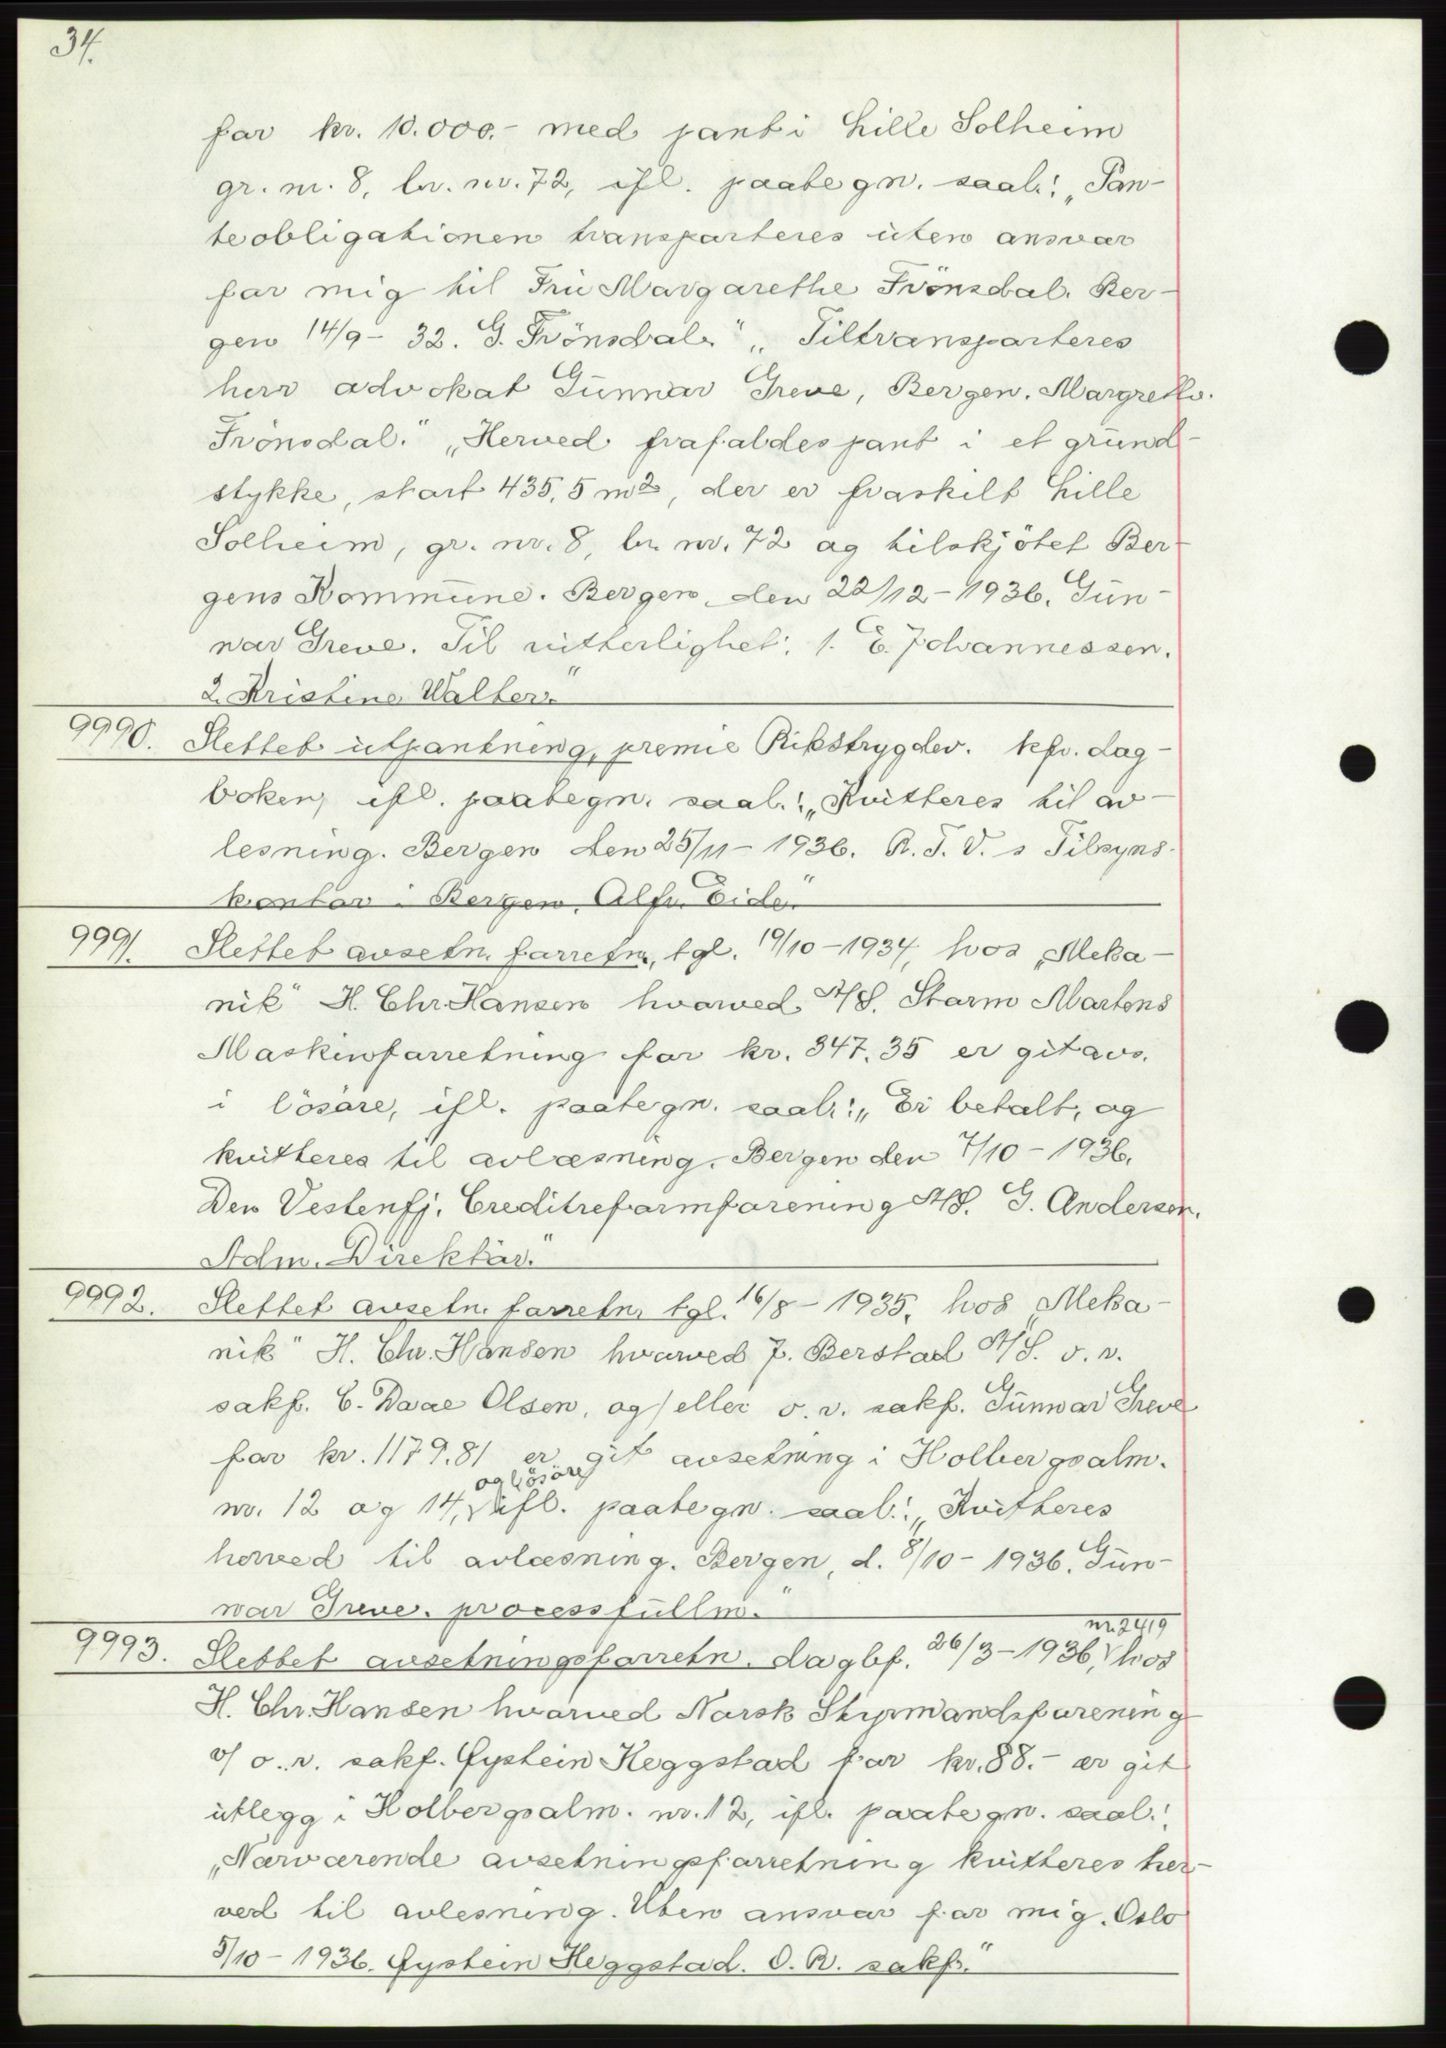 34.
for kr. 10.000.- med pant i Lille Solheim
gr. nr. 8, br. nr. 72, ifl. paategn. saal.: „Pan-
teobligationen transporteres uten ansvar
for mig til Fru Margarethe Frönsdal. Ber-
gen 14/9 - 32. G. Frönsdal." „Tiltransporteres
herr advokat Gunnar Greve, Bergen. Margrethe
Frönsdal." „Herved frafaldes pant i et grund-
stykke, stort 435,5 m2, der er fraskilt Lille
Solheim, gr. nr. 8, br. nr. 72 og tilskjötet Ber-
gens Kommune. Bergen, den 22/12 - 1936. Gun-
nar Greve. Til vitterlighet: 1. E. Johannessen.
2. Kristine Walter."
9990. Slettet utpantning, premie Rikstrygdev. kfr. dag-
boken, ifl. paategn. saal.: „Kvitteres til av-
lesning. Bergen den 25/11 - 1936. R. T. V. s Tilsyns-
kontor i Bergen. Alfr. Eide."
9991. Slettet avsetn. forretn., tgl. 19/10 - 1934, hos „Meka-
nik" H. Chr. Hansen hvorved A/S. Storm Martens
Maskinforretning for kr. 347.35 er git avs.
i lösöre, ifl. paategn. saal.: „Er betalt, og
kvitteres til avlæsning. Bergen den 7/10 - 1936.
Den Vestenfj. Creditreformforening A/S. G. Andersen.
Adm. Direktör."
9992. Slettet avsetn. forretn. tgl. 16/8 - 1935, hos „Meka-
nik" H. Chr. Hansen hvorved J. Berstad A/S. v. o.
sakf. C. Daae Olsen, og/eller o. r. sakf. Gunnar Greve
for kr. 1179.81 er git avsetning i Holbergsalm.
og lösöre
nr. 12 og 14, ifl. paategn. saal.: „Kvitteres
herved til avlæsning. Bergen, d. 8/10 - 1936. Gun-
nar Greve. processfullm."
nr. 2419
9993. Slettet avsetningsforretn. dagbf. 26/3 - 1936, hos
H. Chr. Hansen hvorved Norsk Styrmandsforening
v/ o. r. sakf. Øystein Heggstad for kr. 88.- er git
utlegg i Holbergsalm. nr. 12, ifl. paategn. saal.:
„Nærværende avsetningsforretning kvitteres her-
ved til avlesning. Uten ansvar for mig. Oslo
5/10 - 1936. Øystein Heggstad. O. R. sakf."